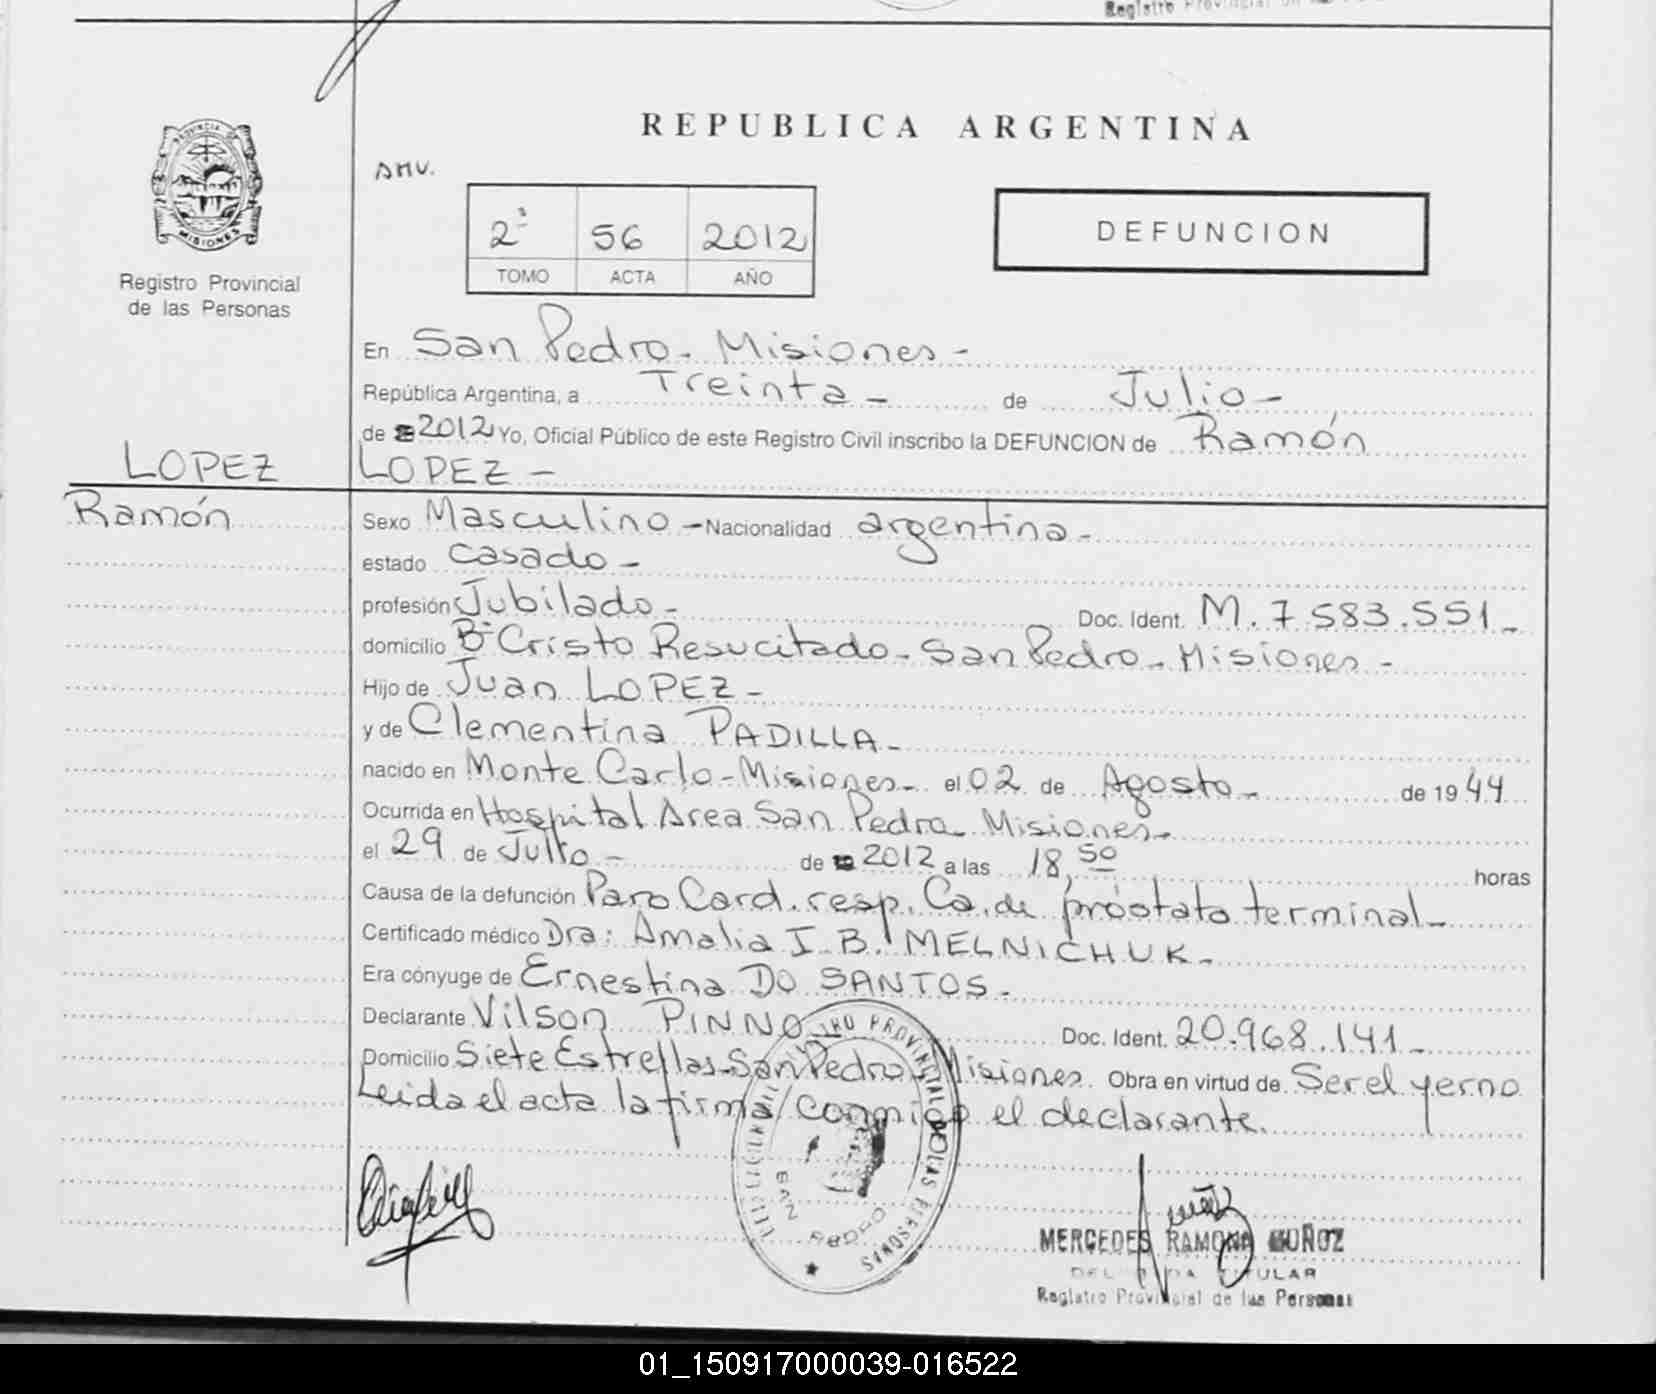 Registro Provincial
REPUBLICA ARGENTINA
PROVINCIA DE
MISIONES
AMV.
2º 56 2012
TOMO ACTA AÑO
DEFUNCION
Registro Provincial
de las Personas
En San Pedro - Misiones -
República Argentina, a Treinta - de Julio -
de 2012 Yo, Oficial Público de este Registro Civil inscribo la DEFUNCION de Ramón
LOPEZ LOPEZ -
Ramón Sexo Masculino - Nacionalidad argentina -
estado casado -
profesión Jubilado - Doc. Ident. M. 7.583.551 -
domicilio Bº Cristo Resucitado - San Pedro - Misiones -
Hijo de Juan LOPEZ -
y de Clementina PADILLA -
nacido en Monte Carlo - Misiones - el 02 de Agosto - de 1944
Ocurrida en Hospital Area San Pedro Misiones -
el 29 de Julio - de 2012 a las 18,50 horas
Causa de la defunción Paro Card. resp. Ca. de próstata terminal -
Certificado médico Dra: Amalia I. B. MELNICHUK -
Era cónyuge de Ernestina DO SANTOS -
Declarante Vilson PINNO Doc. Ident. 20.968.141 -
Domicilio Siete Estrellas - San Pedro Misiones. Obra en virtud de Ser el yerno
Leida el acta la firma conmigo el declarante.
PROVINCIAL DE LAS PERSONAS
SAN PEDRO
MERCEDES RAMONA MUÑOZ
TITULAR
Registro Provincial de las Personas
01_150917000039-016522